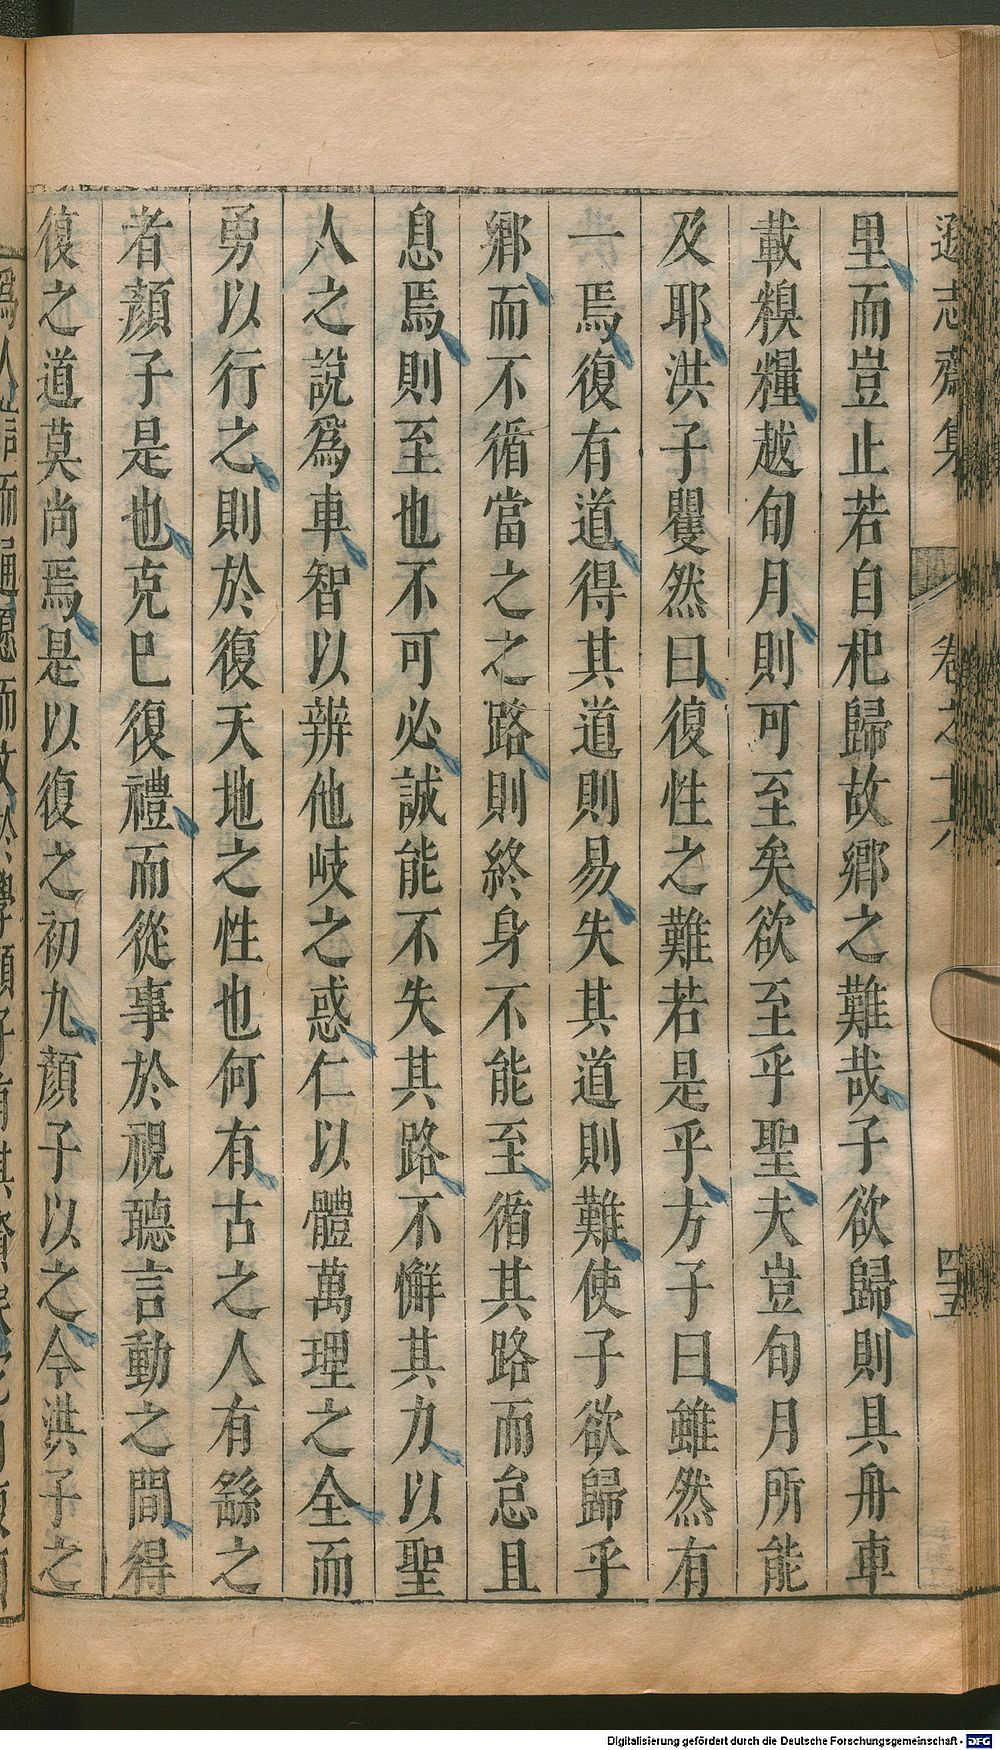 遜志齋集 卷之十六 四五
里而豈止若自杞歸故鄉之難哉子欲歸則具舟車
載糗糧越旬月則可至矣欲至乎聖夫豈旬月所能
及耶洪子矍然曰復性之難若是乎方子曰雖然有
一焉復有道得其道則易失其道則難使子欲歸乎
鄉而不循當之之路則終身不能至循其路而怠且
息焉則至也不可必誠能不失其路不懈其力以聖
人之說爲車智以辨他岐之惑仁以體萬理之全而
勇以行之則於復天地之性也何有古之人有繇之
者顏子是也克巳復禮而從事於視聽言動之間得
復之道莫尚焉是以復之初九顏子以之今洪子之
Digitalisierung gefördert durch die Deutsche Forschungsgemeinschaft - DFG